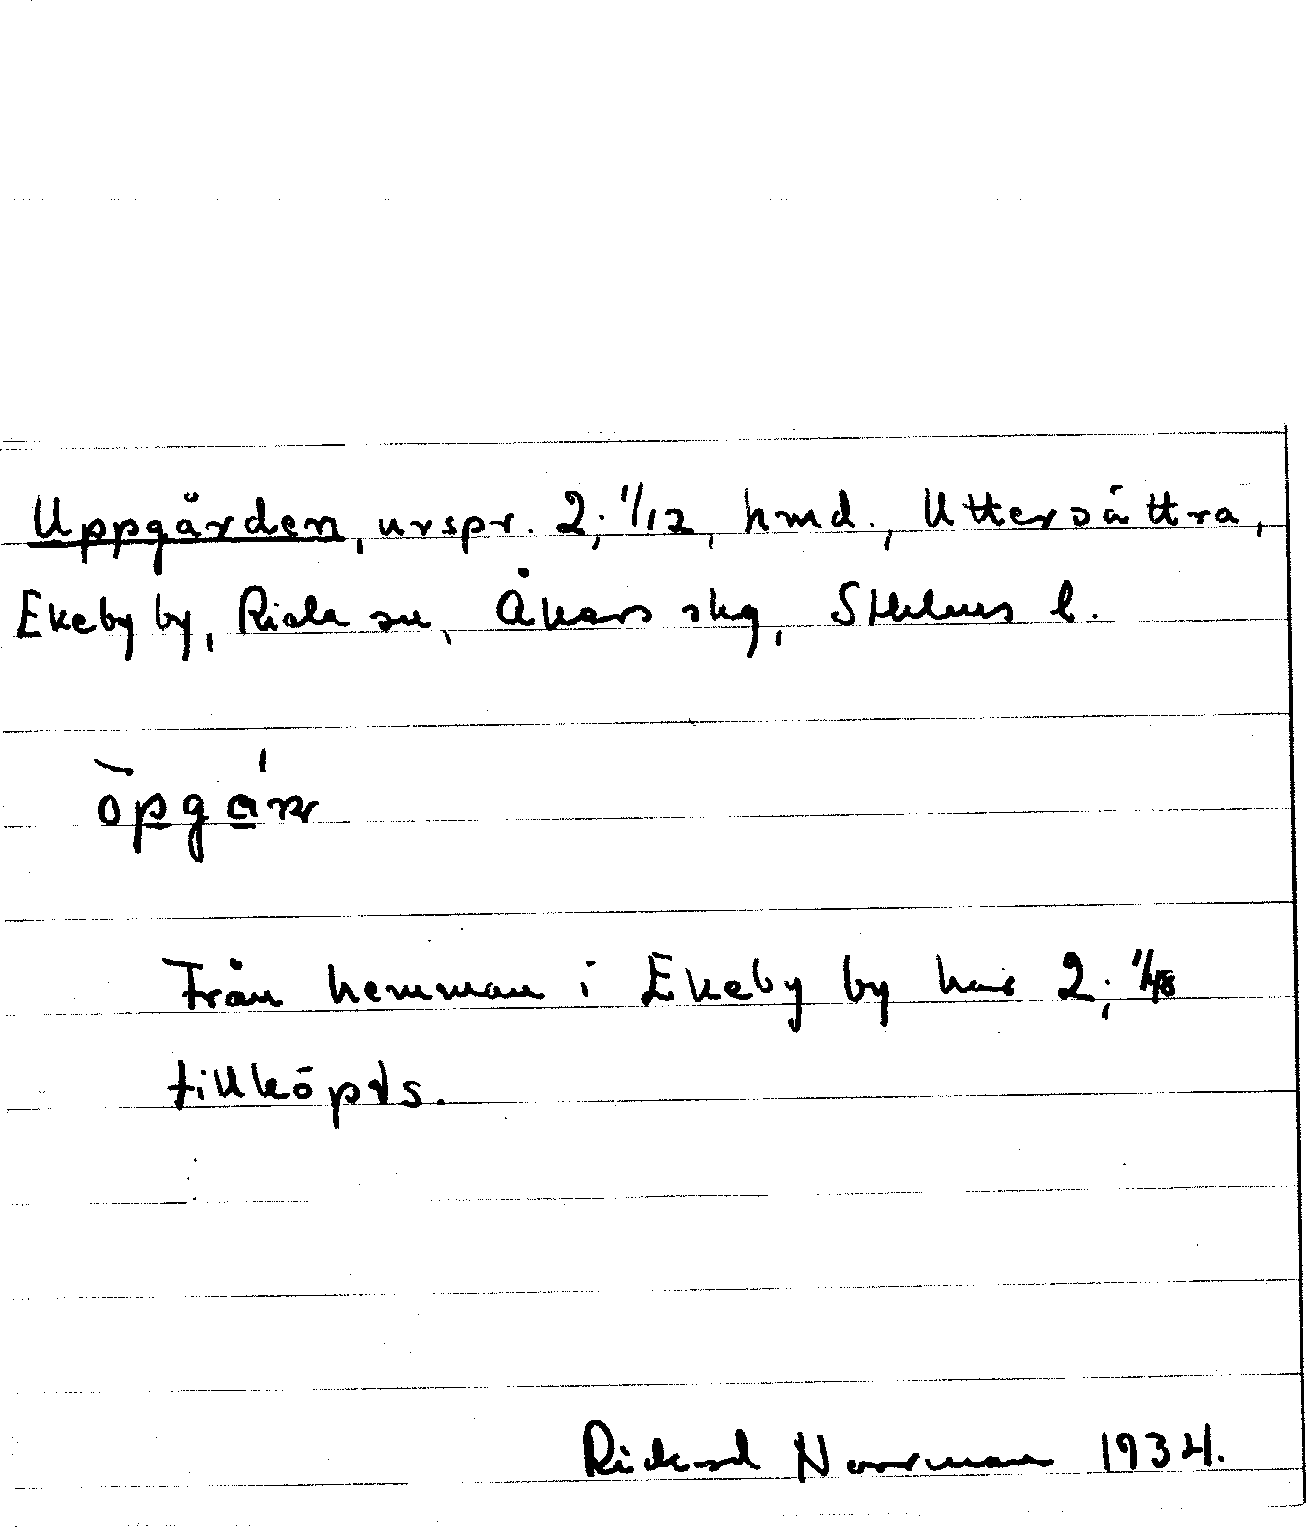 Uppgården, urspr. 2; 1/12, hmd., Uttersättra,
Ekeby by, Riala sn, Åkers skg, Sthlms l.
Från hemman i Ekeby by har 2; 1/48
tillköpts.
Rickard Norrman 1934.